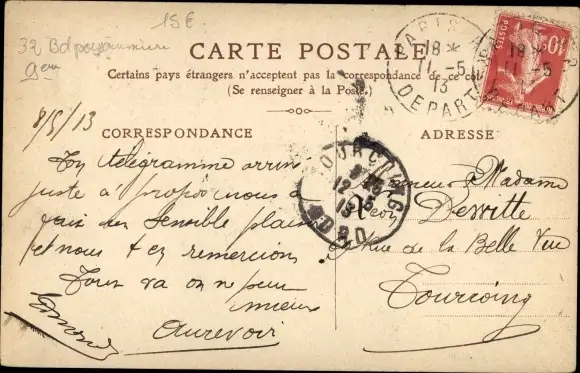 15€
32 Bd poissonniere
9em
CARTE POSTALE
Certains pays étrangers n'acceptent pas la correspondance de ce côté
(Se renseigner à la Poste.)
PARIS
18 *
11 -5
13
DEPART
18 *
11 -5
POSTES
10
8/5/13
CORRESPONDANCE
ADRESSE
TOURCOING
12 5
13
NORD
Ton télégramme arriv
juste à propos nous a
fait un sensible plaisir
et nous t en remercions
Tout va on ne peut
mieux
Aurevoir
Edmond
Monsieur & Madame
Léon Dewitte
Rue de la Belle Vue
Tourcoing